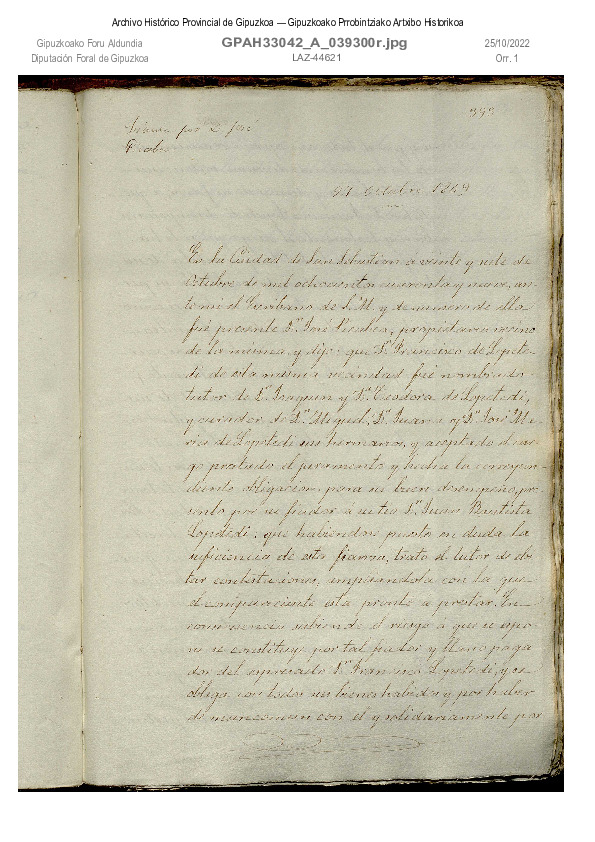 Archivo Histórico Provincial de Gipuzkoa — Gipuzkoako Prrobintziako Artxibo Historikoa
Gipuzkoako Foru Aldundia
Diputación Foral de Gipuzkoa
GPAH33042_A_039300r.jpg
LAZ-44621
25/10/2022
Orr. 1
393
Fianza por D. José
27 Octubre 1849
En la Ciudad de San Sebastian a veinte y siete de
Octubre de mil ochocientos cuarenta y nueve, an-
te mi el Escribano de S. M. y de numero de ella
fué presente Dn. José propietario vecino
de la misma, y dijo: que Dn. Francisco de Lopete-
di de esta misma vecindad fué nombrado
tutor de Dn. Joaquin y Da. Teodora de Lopetedi,
y curador de Dn. Miguel, Da. Juana y Dn. José Ma-
ria de Lopetedi sus hermanos, y aceptado el car-
go prestado el juramento y hecha la correspon-
diente obligacion para su buen desempeño, pre-
sentó por su fiador á su tio Dn. Juan Bautista
Lopetedi: que habiendose puesto en duda la
suficiencia de esta fianza, trata el tutor de evi-
tar contestaciones, ampliandola con la que
el compareciente está pronto a prestar. En
consecuencia sabiendo el riesgo á que se espo-
ne se constituye por tal fiador y llano paga-
dor del espresado Dn. Francisco Lopetedi, y se
obliga con todos sus bienes habidos y por haber
de mancomun con él y solidariamente por